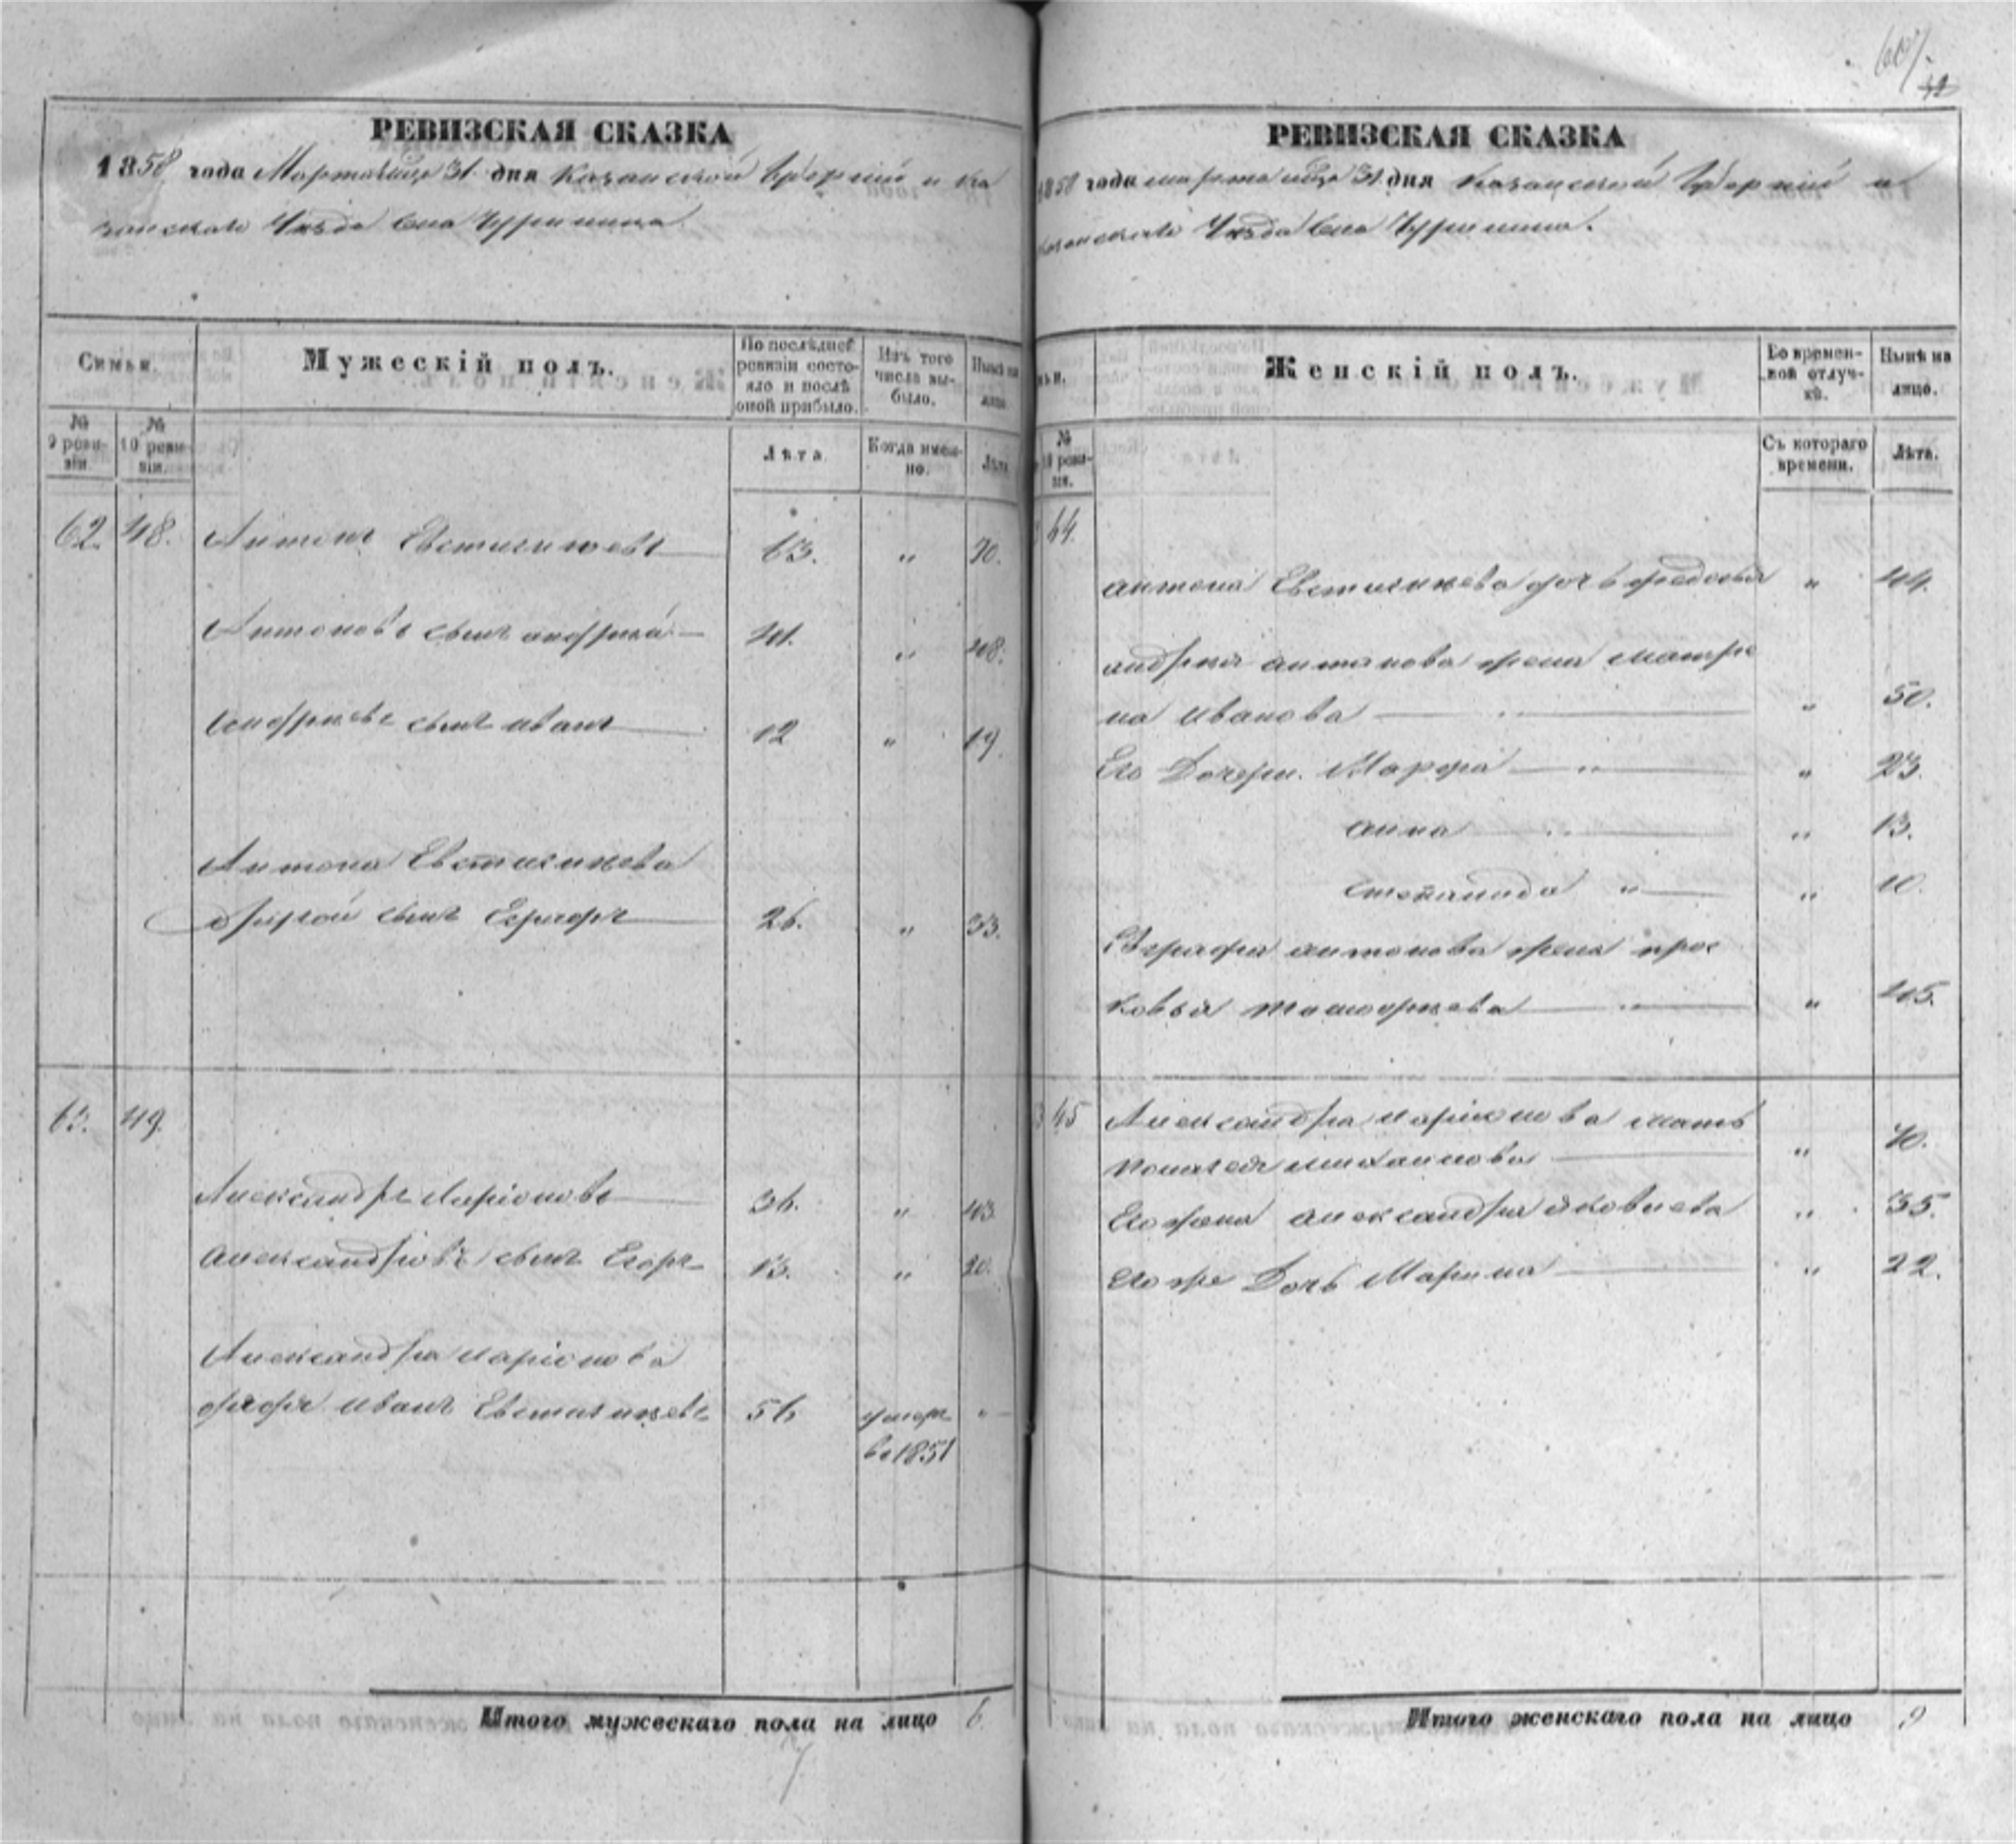 607.
РЕВИЗСКАЯ СКАЗКА
1858 года Марта месяца 31 дня Казанской Губернiи и Ка
занскаго Уѣзда Села
Семьи.
Мужескiй полъ.
По послѣдней ревизiи состояло и послѣ оной прибыло.
Изъ того числа выбыло.
Нынѣ на лицо.
№ 9 ревизiи.
№ 10 ревизiи.
Лѣта.
Когда именно.
Лѣта
62. 48. Антонъ Евстигнѣевъ 63. " 70.
Антоновъ сынъ Андрей 41. " 48.
Андреевъ сынъ Иванъ 12 " 19.
Антона Евстигнѣева
другой сынъ Евграфъ 26. " 33.
63. 49.
Александръ Ларiоновъ 36. " 43
Александровъ сынъ Егоръ 13. " 20.
Александра Ларiонова
дядя Иванъ Евстигнѣевъ 56 умеръ "
въ 1851
Итого мужескаго пола на лицо 6.
7
РЕВИЗСКАЯ СКАЗКА
1858 года марта месяца 31 дня Казанской Губернiи и
Казанскаго Уѣзда Села
Женскiй полъ.
Во временной отлучкѣ.
Нынѣ на лицо.
Съ котораго времени.
Лѣта.
Антона Евстигнѣева дочь Федосья " 44.
Андрея Антонова жена Матре
на Иванова " 50.
Его Дочери. Марфа " 23.
Анна " 13.
Степанида " 10.
Евграфа Антонова жена Прас
ковья Тимофеева " 45.
Александра Ларiонова мать
Михайлова " 70.
Его жена Александра Яковлева " 35.
Его же Дочь Марина " 22.
Итого женскаго пола на лицо 9